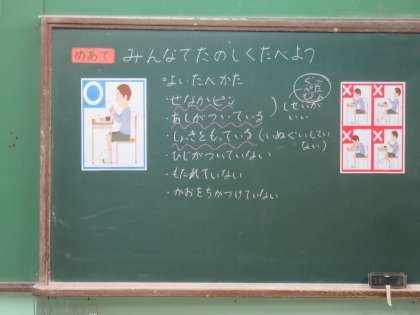 めあて みんなでたのしくたべよう
○よいたべかた
・せなかピン
・あしがついている
)しせいが
いい
・しょっきをもっている(いぬぐいしてい
ない)
・ひじがついていない
・もたれていない
・かおをちかづけていない
ぐー
ぺた
ぴん